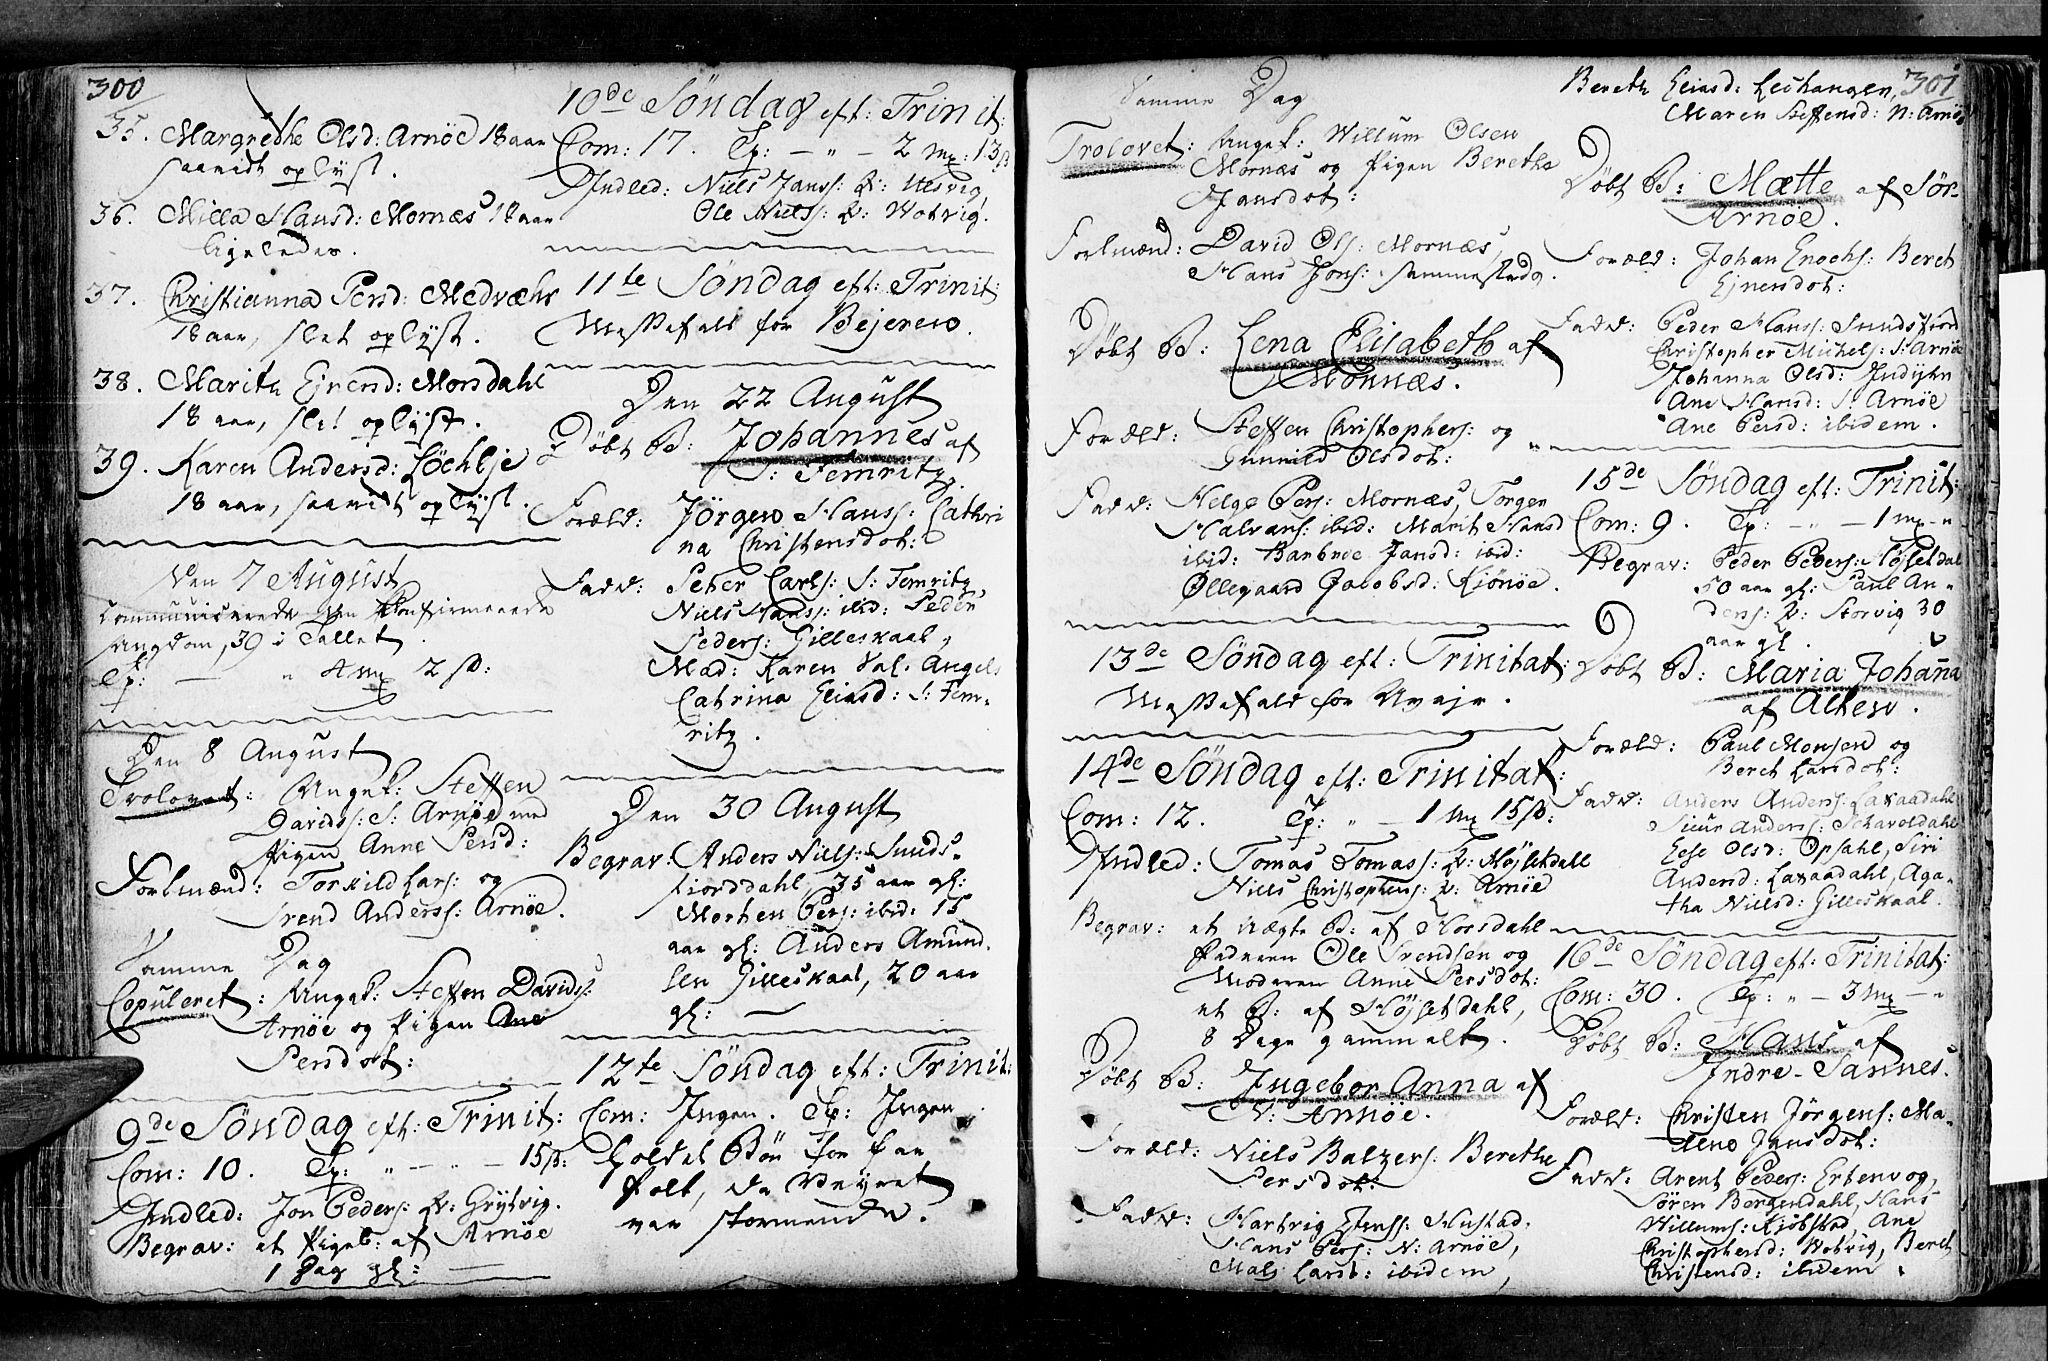 300
35. Margrethe Olsd: Arnöe 18 aar
saavidt oplyst.
36. Milla Hansd: Mornæs 18 aar
ligeledes.
37. Christianna Persd: Medvæhr
18 aar, slet oplyst.
38. Marith Ejnersd: Morsdahl
18 aar, slet oplyst.
39. Karen Andersd: Löchlje
18 aar, saavidt oplyst.
Den 7 August
Communicerede den Confirmerede
Ungdom, 39 i Tallet.
Tp: — " 4 mk 2 ß:
Den 8 August
Trolovet: Ungk: Steffen
Davids: S: Arnöe med
Pigen Anne Persd:
Forlmænd: Torkild Lars: og
Trend Anderss: Arnöe.
Samme Dag
Copuleret: Ungk: Steffen Davids:
Arnöe og Pigen Ane
Persdot:
9de Söndag eft: Trinit:
Com: 10. Tp: " — " — 15 ß:
Indled: Jon Peders: K: Grytvig.
Begrav: et Pigeb: af Arnöe
1 Dag gl: —
10de Söndag eft: Trinit:
Com: 17. Tp: — " — 2 mk: 13 ß
Indled: Niels Janss: K:
Ole Niels: K:
11te Söndag eft: Trinit:
Messefald for Bejeren.
Den 22 August
Döbt B: Johannes af
S: Femritz.
Foræld: Jörgen Hanss: Cathri
na Christensdot:
Fadd: Peter Carls: S: Femritz,
Niels Hanss: ibid: Peder
Peders: Gilleskaal,
Mad: Karen Sal. Angels
Catrina Eliasd: S: Fem-
ritz.
Den 30 August
Begrav: Anders Niels: Sunds-
fjorddahl, 35 aar gl:
Morten Pers: ibid: 15
aar gl: Anders Amund-
sen Gilleskaal, 20 aar
gl: —
12te Söndag eft: Trinit:
Com: Ingen. Tp: Ingen.
Holdet Bön for faa
folk, da Veyret
var stormende.
301
Samme Dag
Trolovet: Ungk: Willum Olsen
Mornæs og Pigen Berethe
Jansdot:
Forlmænd: David Ols: Mornæs,
Hans Jons: sammestedz.
Döbt B: Lena Elisabeth af
Mornæs.
Foræld: Steffen Christophers: og
Gunnild Olsdot:
Fadd: Helge Pers: Mornæs, Torgen
Halvars: ibid: Marit Hansd
ibid: Barbroe Jansd: ibid:
Öllegaard Jacobsd: Kiönöe.
13de Söndag eft: Trinitat:
Messefald for Uvejr.
14de Söndag eft: Trinitat:
Com: 12. Tp: " — 1 mk 15 ß:
Indled: Tomas Tomass: K: Höjsetdall
Niels Christophers: K: Arnöe
Begrav: et uægte B: af Horsdahl
Faderen Ole Trendsen og
Moderen Anne Persdot:
et B: af Höjsetdahl,
8 Dage gammelt.
Döbt B: Ingebor Anna af
N: Arnöe.
Foræld: Niels Balzers: Berethe
Persdot:
Fadd: Hartvig Jenss: Hustad,
Hans Pers: N: Arnöe,
Mals Larsd: ibidem,
Bereth Eliasd: Leehangen,
Maren Steffensd: N: Arnöe
Döbt B: Mætte af Sör-
Arnöe.
Foræld: Johan Enochs: Beret
Ejnersdot:
Fadd: Peder Hanss: Sundsfiord
Christopher Michels: S: Arnöe
Johanna Olsd: Indijhr
Ane Hansd: S: Arnöe
Ane Persd: ibidem.
15de Söndag eft: Trinit:
Com: 9. Tp: — " — 1 mk — "
Begrav: Peder Peders: Höjsetdal
50 aar gl: Paul An-
ders: K: Storvig 30
aar gl.
Döbt B: Maria Johanna
af Alken.
Foræld: Paul Monsen og
Beret Larsdot:
Fadd: Anders Anders: Laxaadahl
Sieur Anderss: Schavoldahl
Else Olsd: Opsahl, Siri
Andersd: Laxaadahl, Aga-
tha Nielsd: Gilleskaal.
16de Söndag eft: Trinitat:
Com: 30. Tp: " — 3 mk — "
Döbt B: Hans af
Indre-Sannes.
Foræld: Christen Jörgens: Ma-
lene Jansdot:
Fadd: Arent Peders: Ertenvog,
Sören Bergendahl, Hans
Willums: Kiöbstad, Ane
Christophersd: , Beret
Christensd: ibidem.